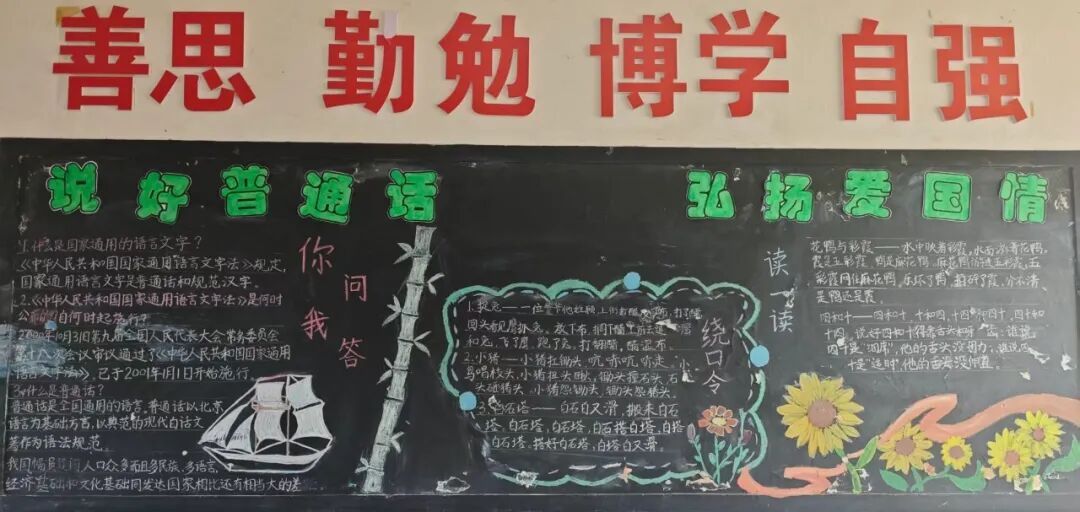 善思 勤勉 博学 自强
说好普通话 弘扬爱国情
1.什么是国家通用的语言文字？
《中华人民共和国国家通用语言文字法》规定，
国家通用语言文字是普通话和规范汉字。
2.《中华人民共和国国家通用语言文字法》是何时
公 自何时起施行？
2000年10月31日第九届全国人民代表大会常务委员会
第十八次会议审议通过了《中华人民共和国国家通用
语言文字法》，已于2001年1月1日开始施行。
3.什么是普通话？
普通话是全国通用的语言，普通话以北京
语言为基础方言，以典范的现代白话文
著作为语法规范。
我国幅员 人口众多而且多民族、多语言，
经济基础和文化基础同发达国家相比还有相当大的差
你问我答
绕口令
1. 兔——一位爷爷他姓顾，上街打醋
回头看见鹰抓兔，放下布，搁下醋，
和兔，飞了鹰，跑了兔，打翻醋，醋湿布。
2.小猪——小猪扛锄头，吭吭走，小
鸟唱枝头，小猪扭头瞅，锄头撞石头，石
头砸猪头，小猪怨锄头，锄头怨猪头。
3.白石塔——白石白又滑，搬来白石
搭白塔，白石塔，白石搭白塔，白塔
白石搭，搭好白石塔，白塔白又滑。
读一读
花鸭与彩霞——水中映着彩霞，水面游着花鸭，
霞是五彩霞，鸭是麻花鸭，麻花鸭游进五彩霞，五
彩霞网住麻花鸭，乐坏了鸭，拍碎了霞，分不清
是鸭还是霞。
四和十——四和十，十和四，十四和四十，四十和
十四。说好四和十得靠舌头和牙齿，谁说
四十是“细席”，他的舌头没用力；谁说
十是“适时”，他的舌头没伸直。